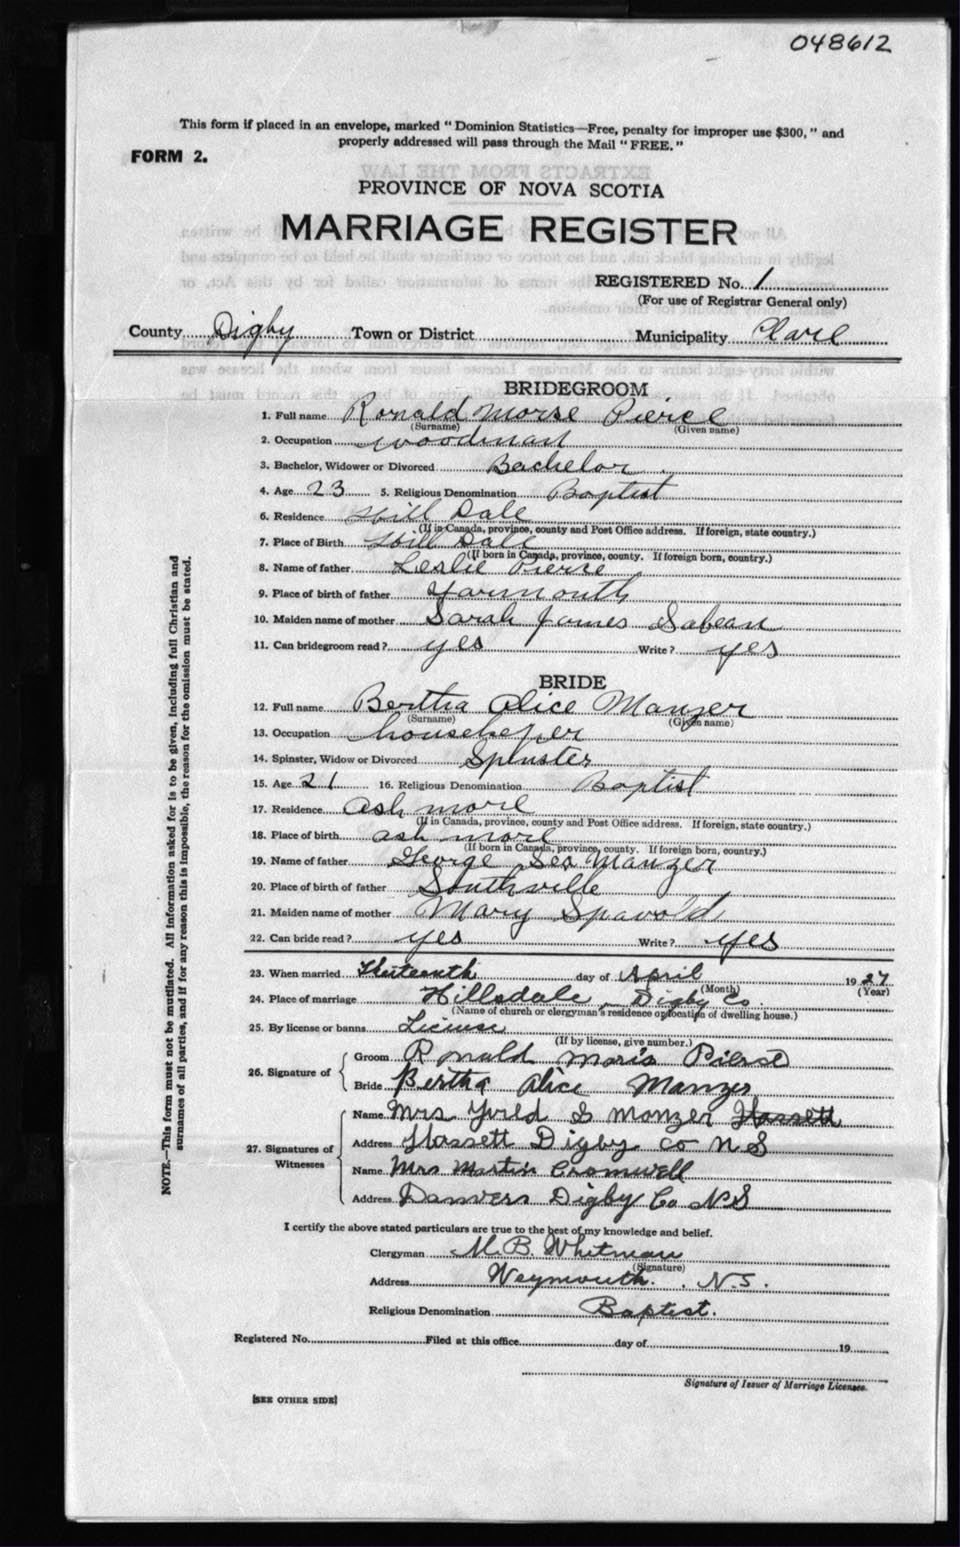 048612
This form if placed in an envelope, marked "Dominion Statistics—Free, penalty for improper use $300," and
properly addressed will pass through the Mail "FREE."
FORM 2.
PROVINCE OF NOVA SCOTIA
MARRIAGE REGISTER
REGISTERED No. 1
(For use of Registrar General only)
County Digby Town or District Municipality Clare
BRIDEGROOM
1. Full name Ronald Morse Pierce
(Surname) (Given name)
2. Occupation woodman
3. Bachelor, Widower or Divorced Bachelor
4. Age 23 5. Religious Denomination Baptist
6. Residence Hill Dale
(If in Canada, province, county and Post Office address. If foreign, state country.)
7. Place of Birth Hill Dale
(If born in Canada, province, county. If foreign born, country.)
8. Name of father Leslie Pierce
9. Place of birth of father Yarmouth
10. Maiden name of mother Sarah James Sabean
11. Can bridegroom read? yes Write? yes
BRIDE
12. Full name Bertha Alice Manzer
(Surname) (Given name)
13. Occupation housekeper
14. Spinster, Widow or Divorced Spinster
15. Age 21 16. Religious Denomination Baptist
17. Residence ash more
(If in Canada, province, county and Post Office address. If foreign, state country.)
18. Place of birth ash more
(If born in Canada, province, county. If foreign born, country.)
19. Name of father George Manzer
20. Place of birth of father Southville
21. Maiden name of mother Mary Spavold
22. Can bride read? yes Write? yes
23. When married Thirteenth day of April 1927
(Month) (Year)
24. Place of marriage Hillsdale, Digby Co.
(Name of church or clergyman's residence or location of dwelling house.)
25. By license or banns License
(If by license, give number.)
26. Signature of
Groom Ronald Moris Pierse
Bride Bertha Alice Manzer
27. Signatures of Witnesses
Name Mrs S Manzer Hassett
Address Hassett Digby co N S
Name Mrs Martin Cromwell
Address Danvers Digby Co N S
I certify the above stated particulars are true to the best of my knowledge and belief.
Clergyman M. B. Whitman
(Signature)
Address Weymouth. N.S.
Religious Denomination Baptist.
Registered No. Filed at this office day of 19
Signature of Issuer of Marriage Licenses.
[SEE OTHER SIDE]
NOTE.—This form must not be mutilated. All information asked for is to be given, including full Christian and
surnames of all parties, and if for any reason this is impossible, the reason for the omission must be stated.